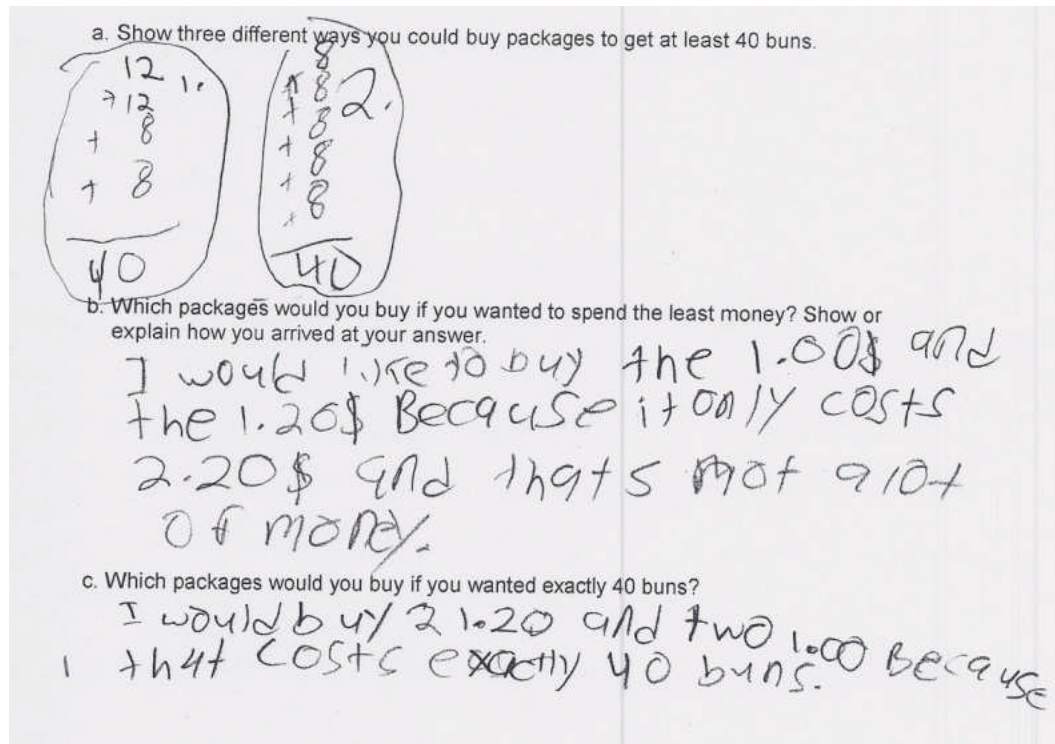 a. Show three different ways you could buy packages to get at least 40 buns.
12 1.
+12
+ 8
+ 8
40
8
+ 8 2.
+ 8
+ 8
+ 8
+
40
b. Which packages would you buy if you wanted to spend the least money? Show or
explain how you arrived at your answer.
I would like to buy the 1.00$ and
the 1.20$ Because it only costs
2.20$ and thats not a lot
of money.
c. Which packages would you buy if you wanted exactly 40 buns?
I would buy 2 1.20 and two 1.00 Because
that costs exactly 40 buns.